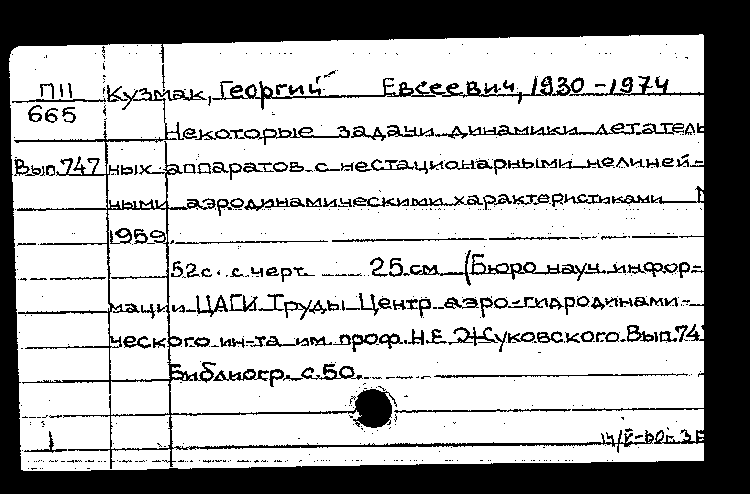 П11 Кузмак, Георгий Евсеевич, 1930-1974
665
Некоторые задачи динамики летатель
Вып.747 ных аппаратов с нестационарными нелиней-
ными аэродинамическими характеристиками М
1959.
52с. с черт 25 см (Бюро науч. инфор-
мации ЦАГИ. Труды Центр аэро-гидродинами-
ческого ин-та им. проф. Н.Е. Жуковского. Вып.747
Библиогр. с.50.
1